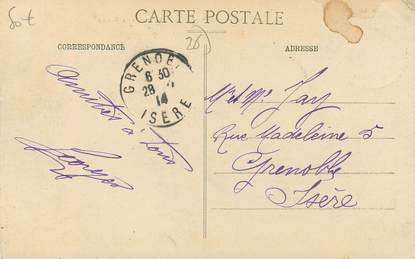 CARTE POSTALE
CORRESPONDANCE
ADRESSE
GRENOBLE
6 30
28
14
ISÈRE
Amitiés à tous
Mr et Me Jay
Rue Madeleine 5
Grenoble
Isère